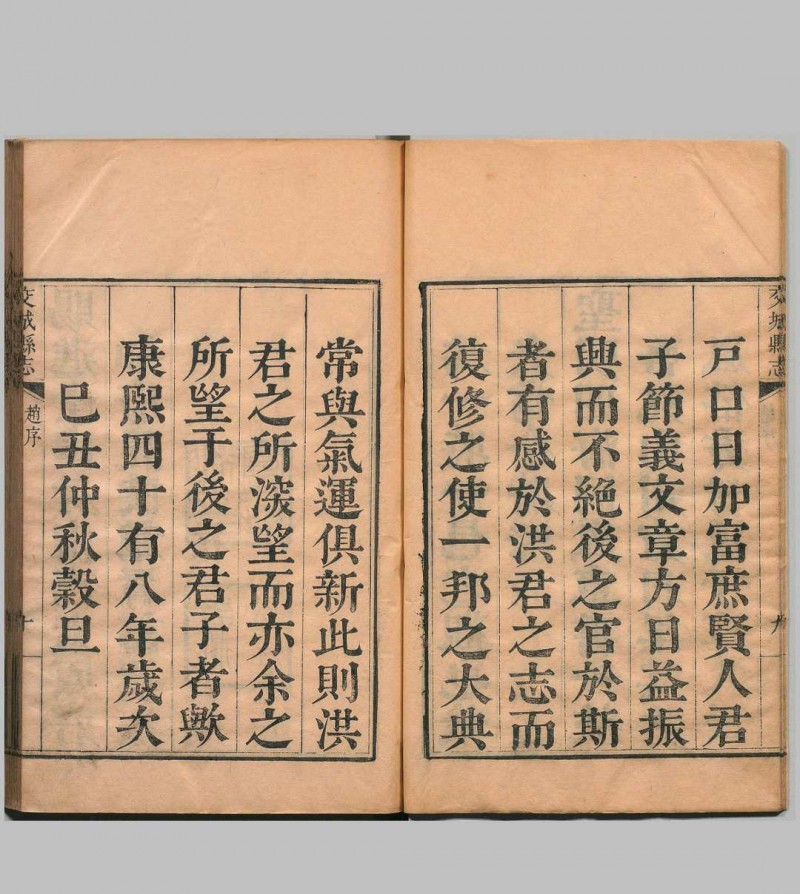 交城縣志
戶口日加富庶賢人君
子節義文章方日益振
興而不絕後之官於斯
者有感於洪君之志而
復修之使一邦之大典
常與氣運俱新此則洪
君之所深望而亦余之
所望于後之君子者歟
康熙四十有八年歲次
巳丑仲秋穀旦
交城縣志
趙序
十